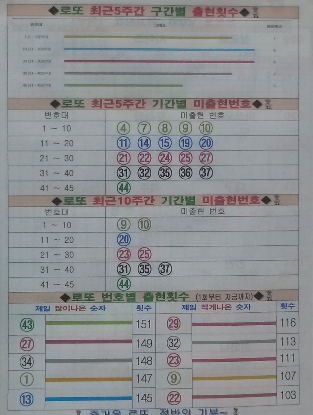 ◆로또 최근5주간 구간별 출현횟수◆
◆로또 최근5주간 기간별 미출현번호◆
번호대 미출현 번호
1 ~ 10 ④ ⑦ ⑧ ⑨ ⑩
11 ~ 20 ⑪ ⑭ ⑮ ⑲ ⑳
21 ~ 30 ㉑ ㉒ ㉔ ㉕ ㉗
31 ~ 40 ㉛ ㉜ ㉟ ㊱ ㊲
41 ~ 45 ㊹
◆로또 최근10주간 기간별 미출현번호◆
번호대 미출현 번호
1 ~ 10 ⑨ ⑩
11 ~ 20 ⑳
21 ~ 30 ㉓ ㉕
31 ~ 40 ㉛ ㉟ ㊲
41 ~ 45 ㊹
◆로또 번호별 출현횟수 (1회부터 지금까지)◆
제일 많이나온 숫자 횟수 제일 적게나온 숫자 횟수
㊸ 151 ㉙ 116
㉗ 149 ㉜ 113
㉞ 148 ㉓ 111
① 147 ⑨ 107
⑬ 145 ㉒ 103